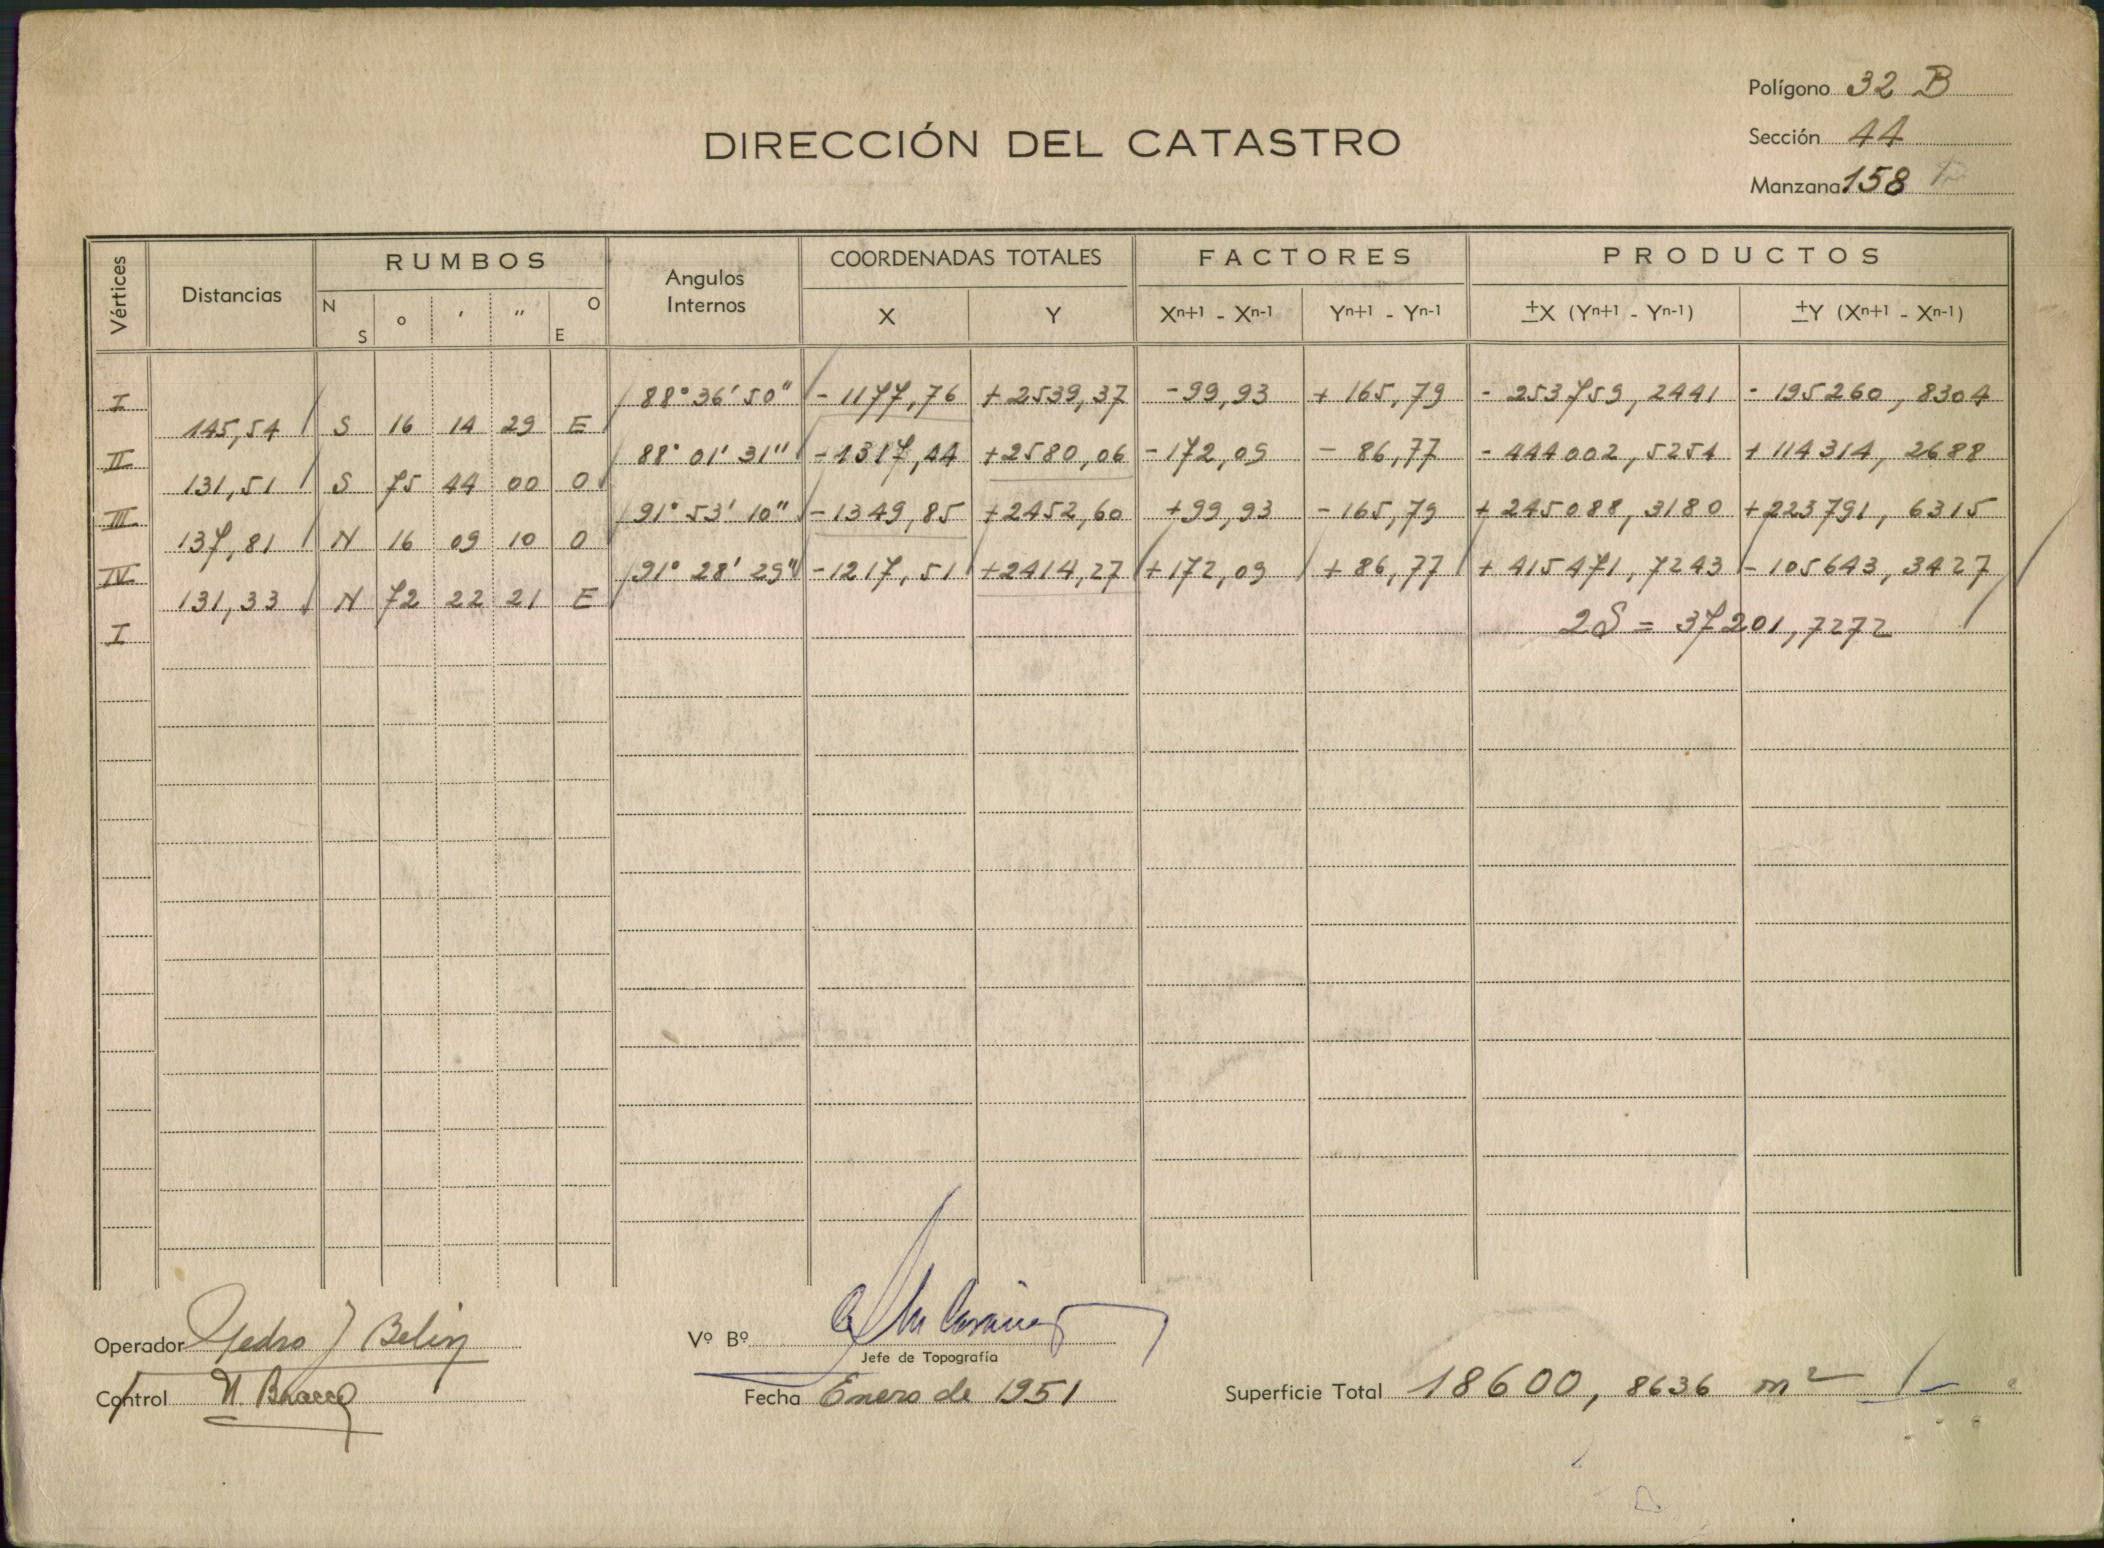 Polígono 32 B
DIRECCIÓN DEL CATASTRO
Sección 44
Manzana 158
Vértices Distancias RUMBOS Angulos Internos COORDENADAS TOTALES FACTORES PRODUCTOS
N S o ' " O E X Y Xn+1 - Xn-1 Yn+1 - Yn-1 ±X (Yn+1 - Yn-1) ±Y (Xn+1 - Xn-1)
I 88° 36' 50" - 1177,76 + 2539,37 - 99,93 + 165,79 - 253759,2441 - 195260,8304
145,54 S 16 14 29 E
II 88° 01' 31" - 1317,44 + 2580,06 - 172,09 - 86,77 - 444002,5254 + 114314,2688
131,51 S 75 44 00 O
III 91° 53' 10" - 1349,85 + 2452,60 + 99,93 - 165,79 + 245088,3180 + 223791,6315
137,81 N 16 09 10 O
IV 91° 28' 29" - 1217,51 + 2414,27 + 172,09 + 86,77 + 415471,7243 - 105643,3427
131,33 N 72 22 21 E
I 2S = 37201,7272
Operador Pedro J Belin
Vº Bº
Jefe de Topografía
Control N. Bracco
Fecha Enero de 1951
Superficie Total 18600,8636 m²